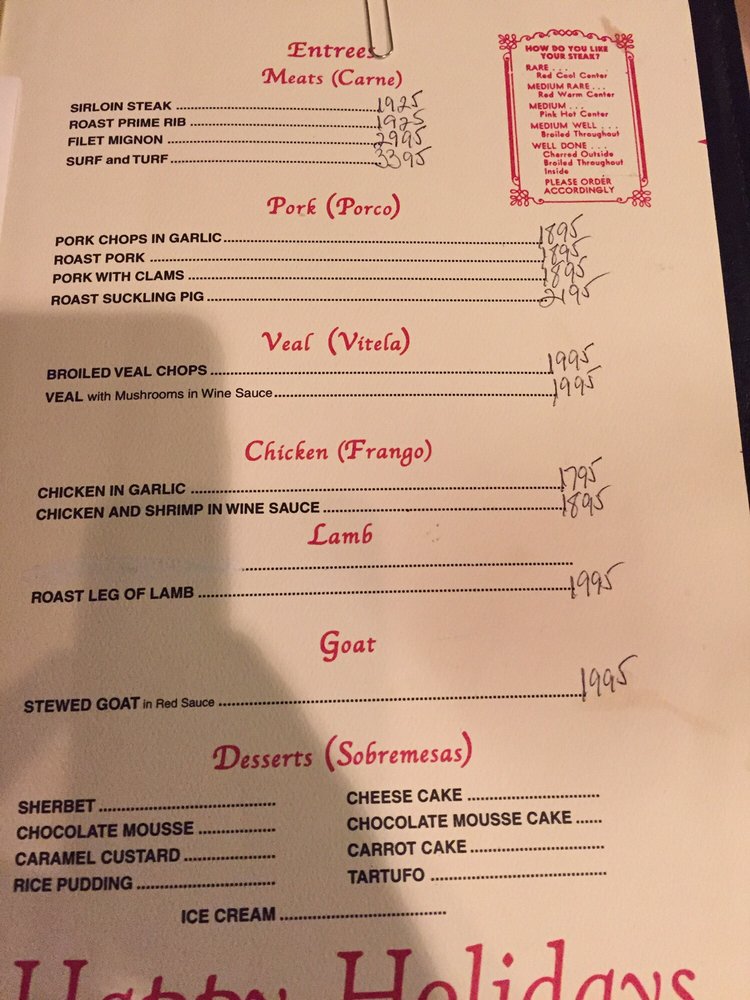 Entrees
Meats (Carne)
SIRLOIN STEAK 1925
ROAST PRIME RIB 1925
FILET MIGNON 2995
SURF and TURF 3395
HOW DO YOU LIKE
YOUR STEAK?
RARE . . .
Red Cool Center
MEDIUM RARE . . .
Red Warm Center
MEDIUM . . .
Pink Hot Center
MEDIUM WELL . . .
Broiled Throughout
WELL DONE . . .
Charred Outside
Broiled Throughout
Inside
PLEASE ORDER
ACCORDINGLY
Pork (Porco)
PORK CHOPS IN GARLIC 1895
ROAST PORK 1895
PORK WITH CLAMS 1895
ROAST SUCKLING PIG 2195
Veal (Vitela)
BROILED VEAL CHOPS 1995
VEAL with Mushrooms in Wine Sauce 1995
Chicken (Frango)
CHICKEN IN GARLIC 1795
CHICKEN AND SHRIMP IN WINE SAUCE 1895
Lamb
ROAST LEG OF LAMB 1995
Goat
STEWED GOAT in Red Sauce 1995
Desserts (Sobremesas)
SHERBET
CHOCOLATE MOUSSE
CARAMEL CUSTARD
RICE PUDDING
CHEESE CAKE
CHOCOLATE MOUSSE CAKE
CARROT CAKE
TARTUFO
ICE CREAM
Happy Holidays